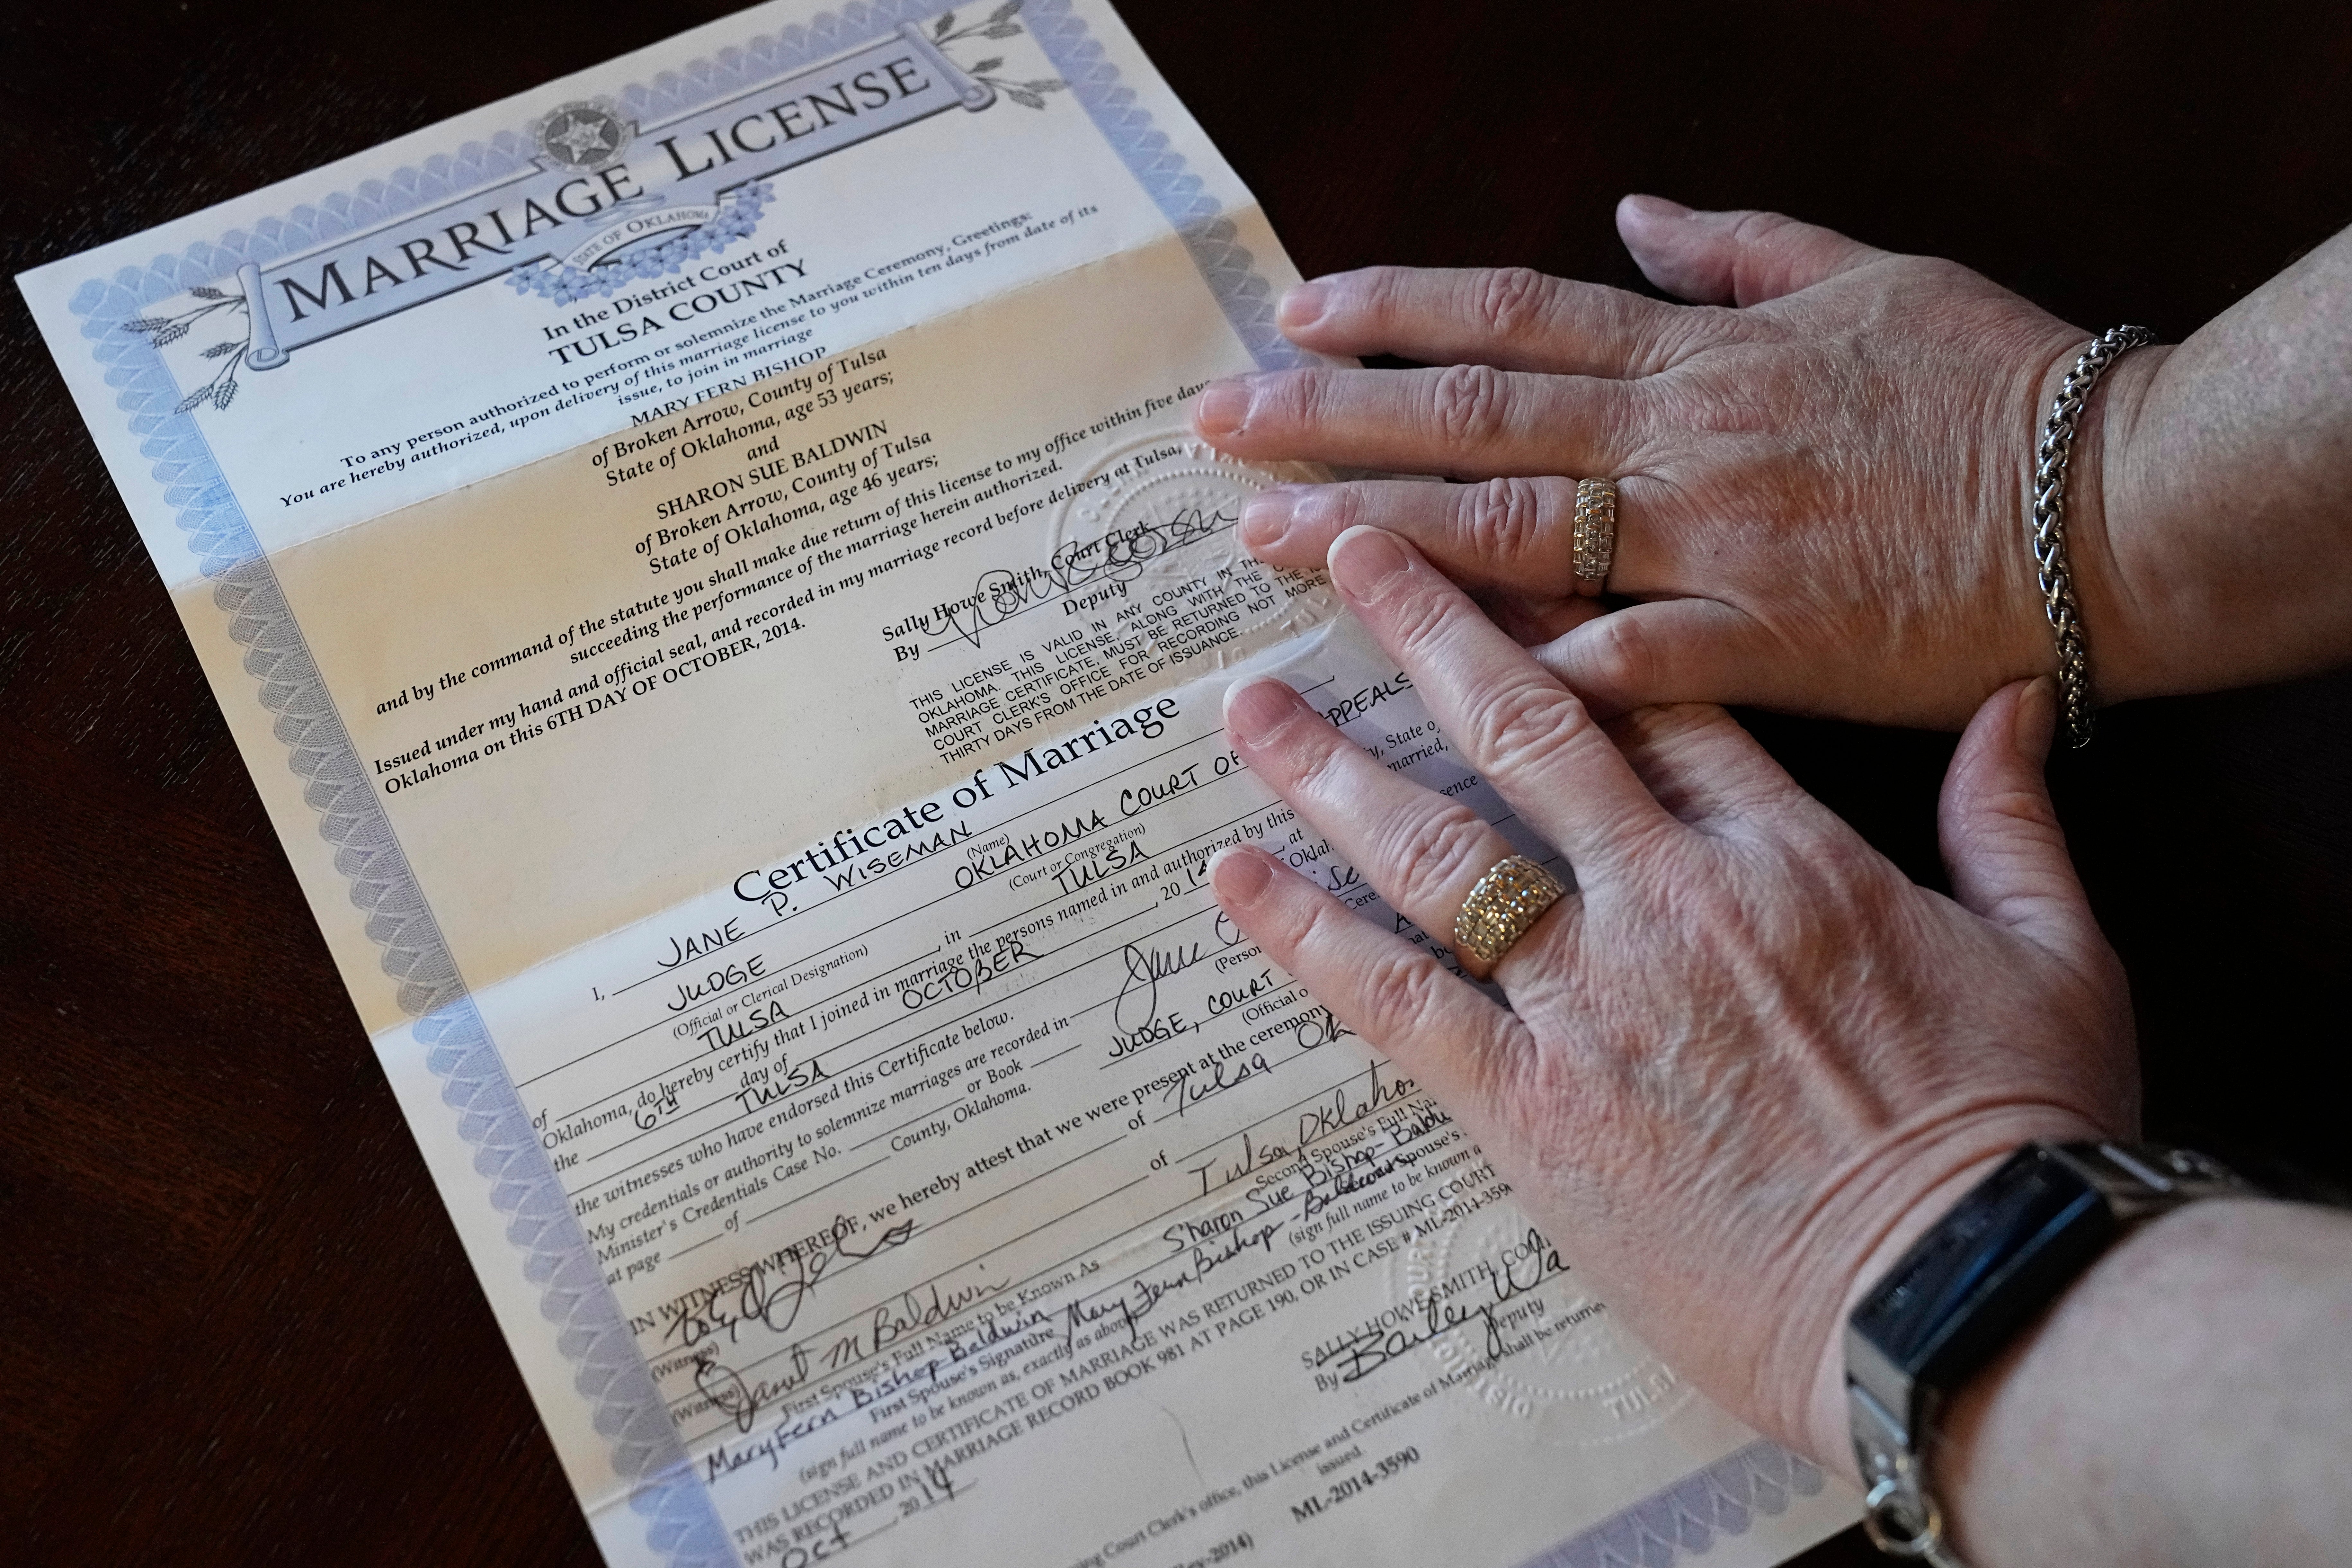 MARRIAGE LICENSE
STATE OF OKLAHOMA
In the District Court of
TULSA COUNTY
To any person authorized to perform or solemnize the Marriage Ceremony, Greetings:
You are hereby authorized, upon delivery of this marriage license to you within ten days from date of its
issue, to join in marriage
MARY FERN BISHOP
of Broken Arrow, County of Tulsa
State of Oklahoma, age 53 years;
and
SHARON SUE BALDWIN
of Broken Arrow, County of Tulsa
State of Oklahoma, age 46 years;
and by the command of the statute you shall make due return of this license to my office within five days
succeeding the performance of the marriage herein authorized.
Issued under my hand and official seal, and recorded in my marriage record before delivery at Tulsa,
Oklahoma on this 6TH DAY OF OCTOBER, 2014.
Sally Howe Smith, Court Clerk
By
Deputy
THIS LICENSE IS VALID IN ANY COUNTY IN
OKLAHOMA. THIS LICENSE, ALONG WITH THE
MARRIAGE CERTIFICATE, MUST BE RETURNED TO THE
COURT CLERK'S OFFICE FOR RECORDING NOT MORE
THIRTY DAYS FROM THE DATE OF ISSUANCE.
Certificate of Marriage
I, JANE P. WISEMAN
(Name)
JUDGE OKLAHOMA COURT OF APPEALS
(Official or Clerical Designation) (Court or Congregation)
of TULSA, in TULSA, State of
Oklahoma, do hereby certify that I joined in marriage the persons named in and authorized by this
the 6TH day of OCTOBER, 2014, at
TULSA
the witnesses who have endorsed this Certificate below.
My credentials or authority to solemnize marriages are recorded in
Minister's Credentials Case No. or Book
at page of County, Oklahoma.
Jane
JUDGE, COURT
IN WITNESS WHEREOF, we hereby attest that we were present at the ceremony
of Tulsa OK
(Witness)
Janet M Baldwin of Tulsa, Oklahom
(Witness)
First Spouse's Full Name to be Known As
Second Spouse's Full Na
Mary Fern Bishop-Baldwin
Sharon Sue Bishop-Baldw
First Spouse's Signature
Spouse's
Mary Fern Bishop-Baldwin
(sign full name to be known as, exactly as above)
(sign full name to be known a
THIS LICENSE AND CERTIFICATE OF MARRIAGE WAS RETURNED TO THE ISSUING COURT
WAS RECORDED IN MARRIAGE RECORD BOOK 981 AT PAGE 190, OR IN CASE # ML-2014-359
Oct, 2014
SALLY HOWE SMITH, COU
By Bailey Wa
Deputy
Court Clerk's office, this License and Certificate of Marriage shall be returne
issued.
ML-2014-3590
2014)